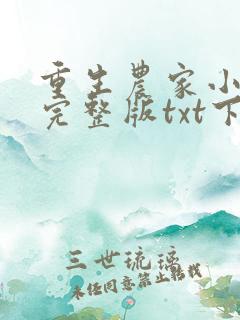 重生農家小
完整版txt下
三世琉璃
未经同意禁止转载